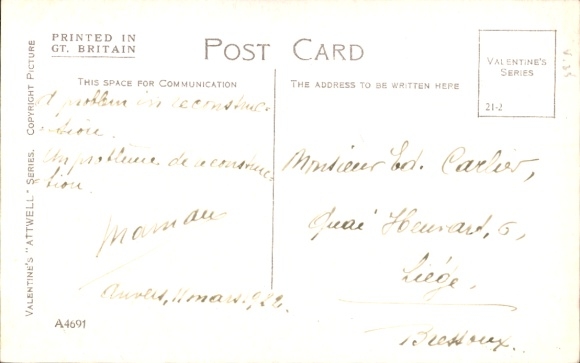 PRINTED IN
GT. BRITAIN
POST CARD
VALENTINE'S
SERIES
21-2
THIS SPACE FOR COMMUNICATION
THE ADDRESS TO BE WRITTEN HERE
VALENTINE'S "ATTWELL" SERIES. COPYRIGHT PICTURE
A problem in reconstruc-
tion.
Un problème de reconstruc-
tion.
Maman
Anvers, 11 mars 922
Monsieur Ed. Carlier,
Quai Henvart, 6,
Liège,
Bressoux.
A4691